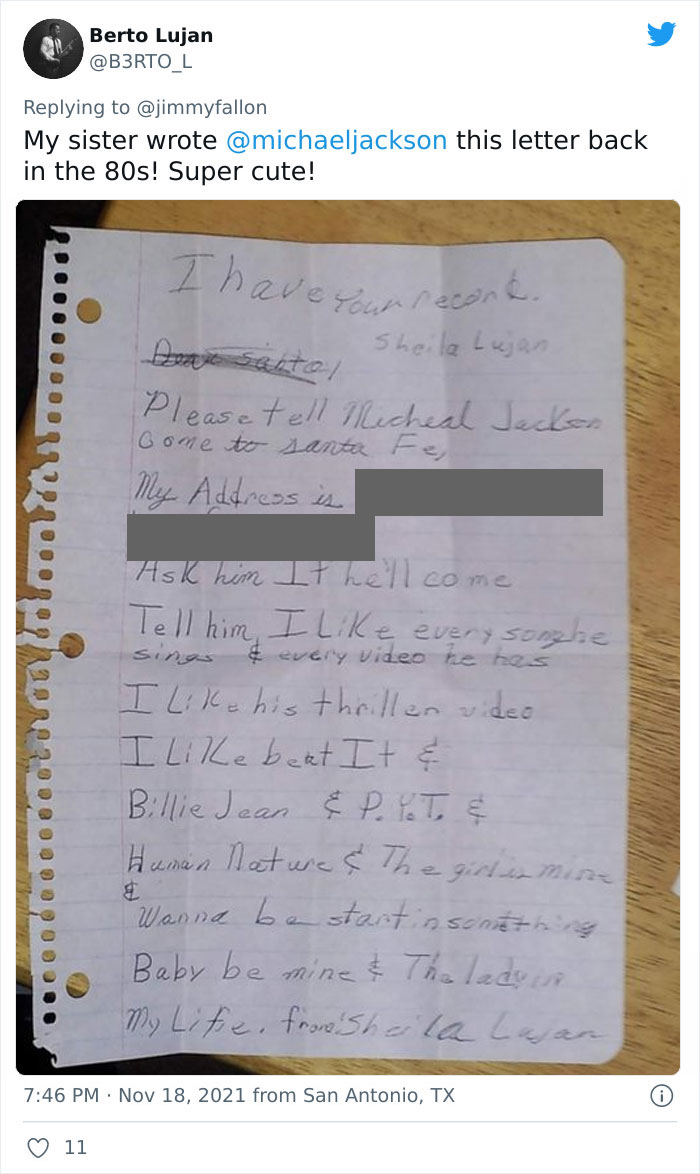 Berto Lujan
@B3RTO_L
Replying to @jimmyfallon
My sister wrote @michaeljackson this letter back
in the 80s! Super cute!
I have your record.
Sheila Lujan
Dear Santa,
Please tell Micheal Jackson
Come to Santa Fe,
My Address is
Ask him If he'll come
Tell him, I Like every song he
sings & every video he has
I Like his thriller video
I Like beat It &
Billie Jean & P.Y.T. &
Human Nature & The girl is mine
&
Wanna be startin somthing
Baby be mine & The lady in
My Life. from Sheila Lujan
7:46 PM · Nov 18, 2021 from San Antonio, TX
11